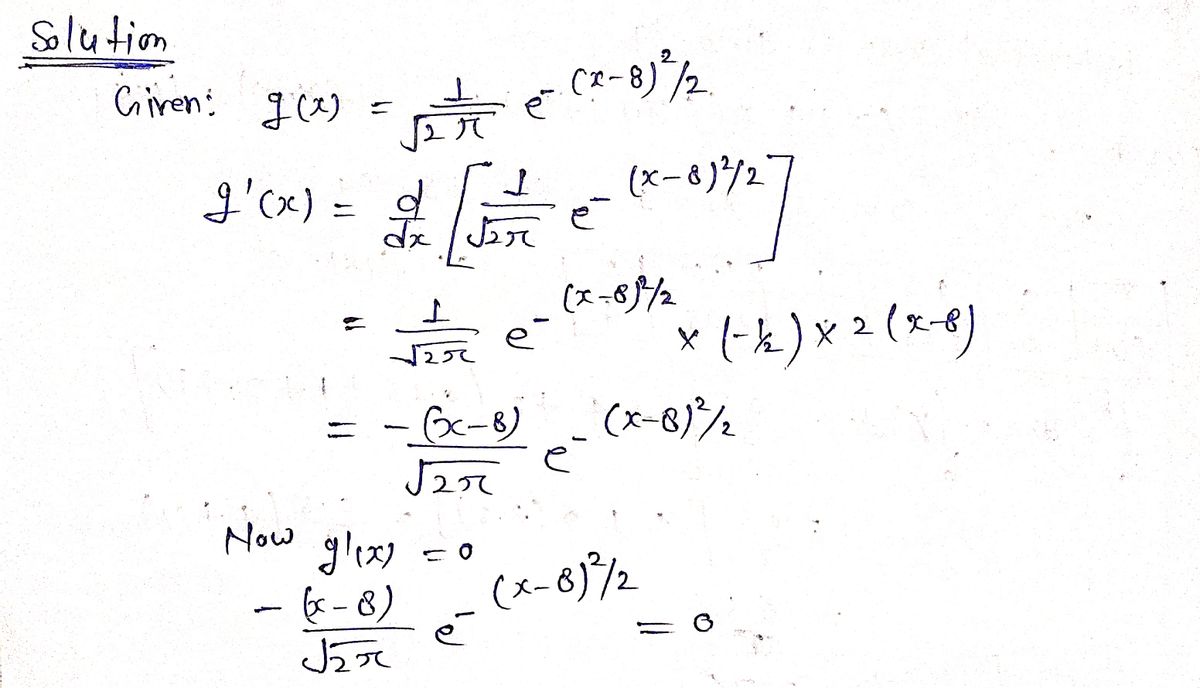 Solution
Given: g(x) = 1/√2π e^-(x-8)²/2
g'(x) = d/dx [1/√2π e^-(x-8)²/2]
= 1/√2π e^-(x-8)²/2 × (-1/2) × 2(x-8)
= -(x-8)/√2π e^-(x-8)²/2
Now g'(x) = 0
-(x-8)/√2π e^-(x-8)²/2 = 0